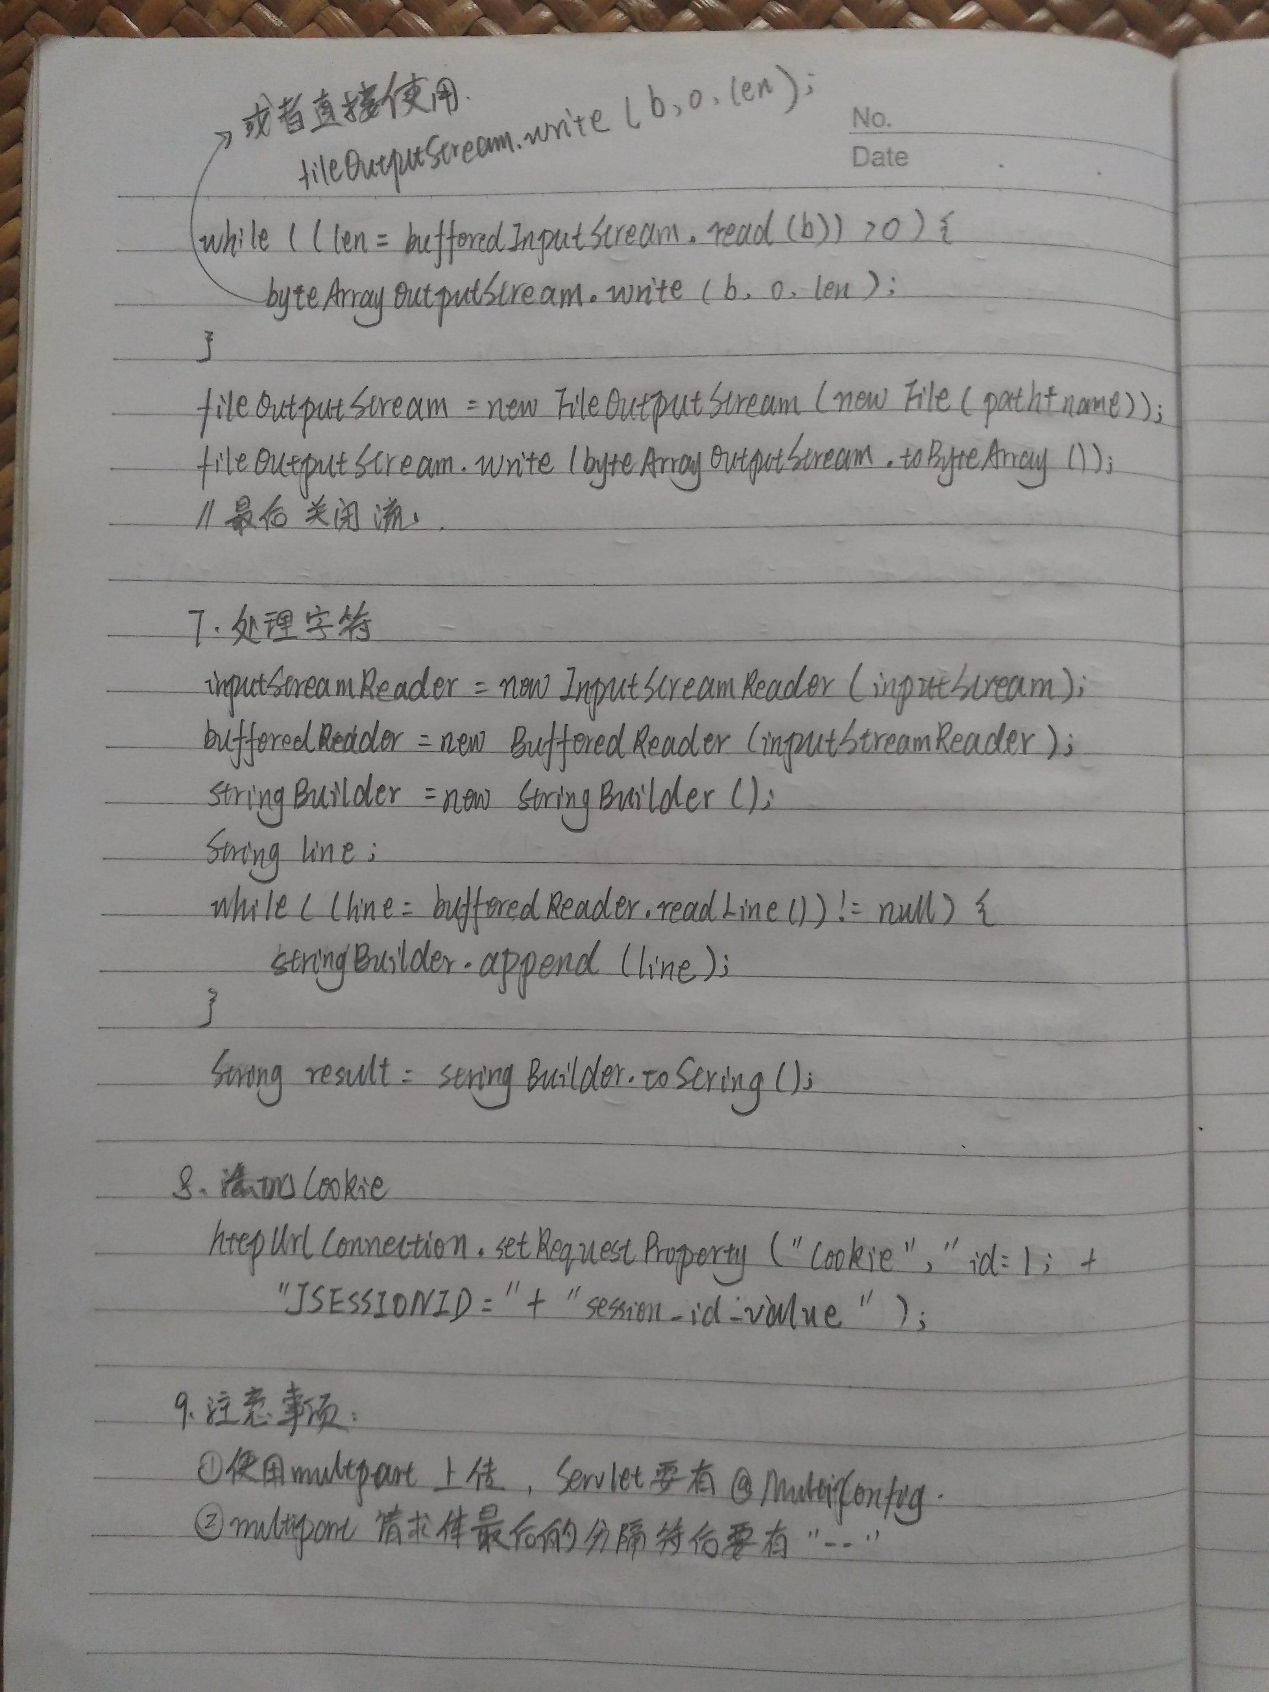 或者直接使用.
fileOutputStream.write(b,0,len);
No.
Date
while((len=bufferedInputStream.read(b))>0){
byteArrayOutputStream.write(b,0,len);
}
fileOutputStream=new FileOutputStream(new File(path+name));
fileOutputStream.write(byteArrayOutputStream.toByteArray());
//最后关闭流.
7.处理字符
inputStreamReader=new InputStreamReader(inputStream);
bufferedReader=new BufferedReader(inputStreamReader);
stringBuilder=new StringBuilder();
String line;
while((line=bufferedReader.readLine())!=null){
stringBuilder.append(line);
}
Strong result=stringBuilder.toString();
8.添加Cookie
httpUrlConnection.setRequestProperty("Cookie","id=1; +
"JSESSIONID="+"session-id-value");
9.注意事项:
①使用multpart上传,Servlet要有@MultiConfig.
②multipart请求体最后的分隔符后要有"--"